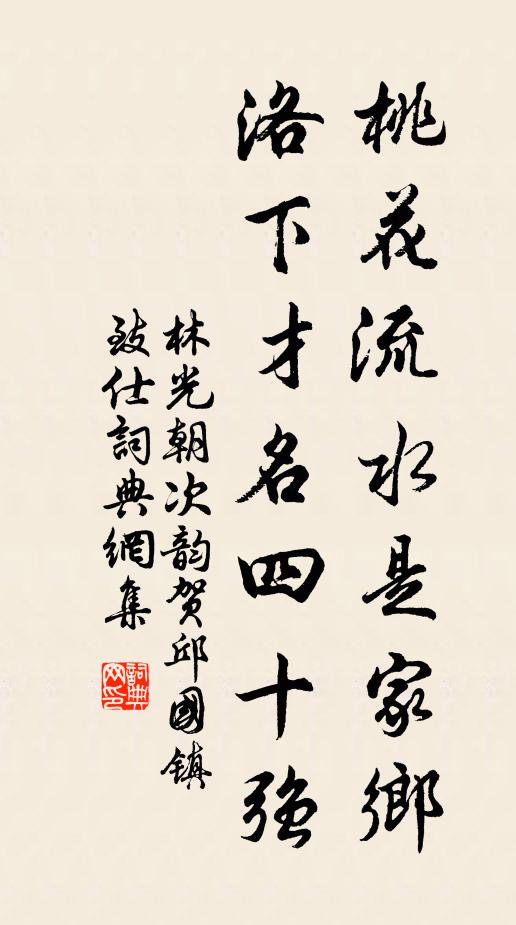 桃花流水是家鄉
洛下才名四十強
林光朝次韵賀邱國鎮
致仕詞典網集
詞典网印